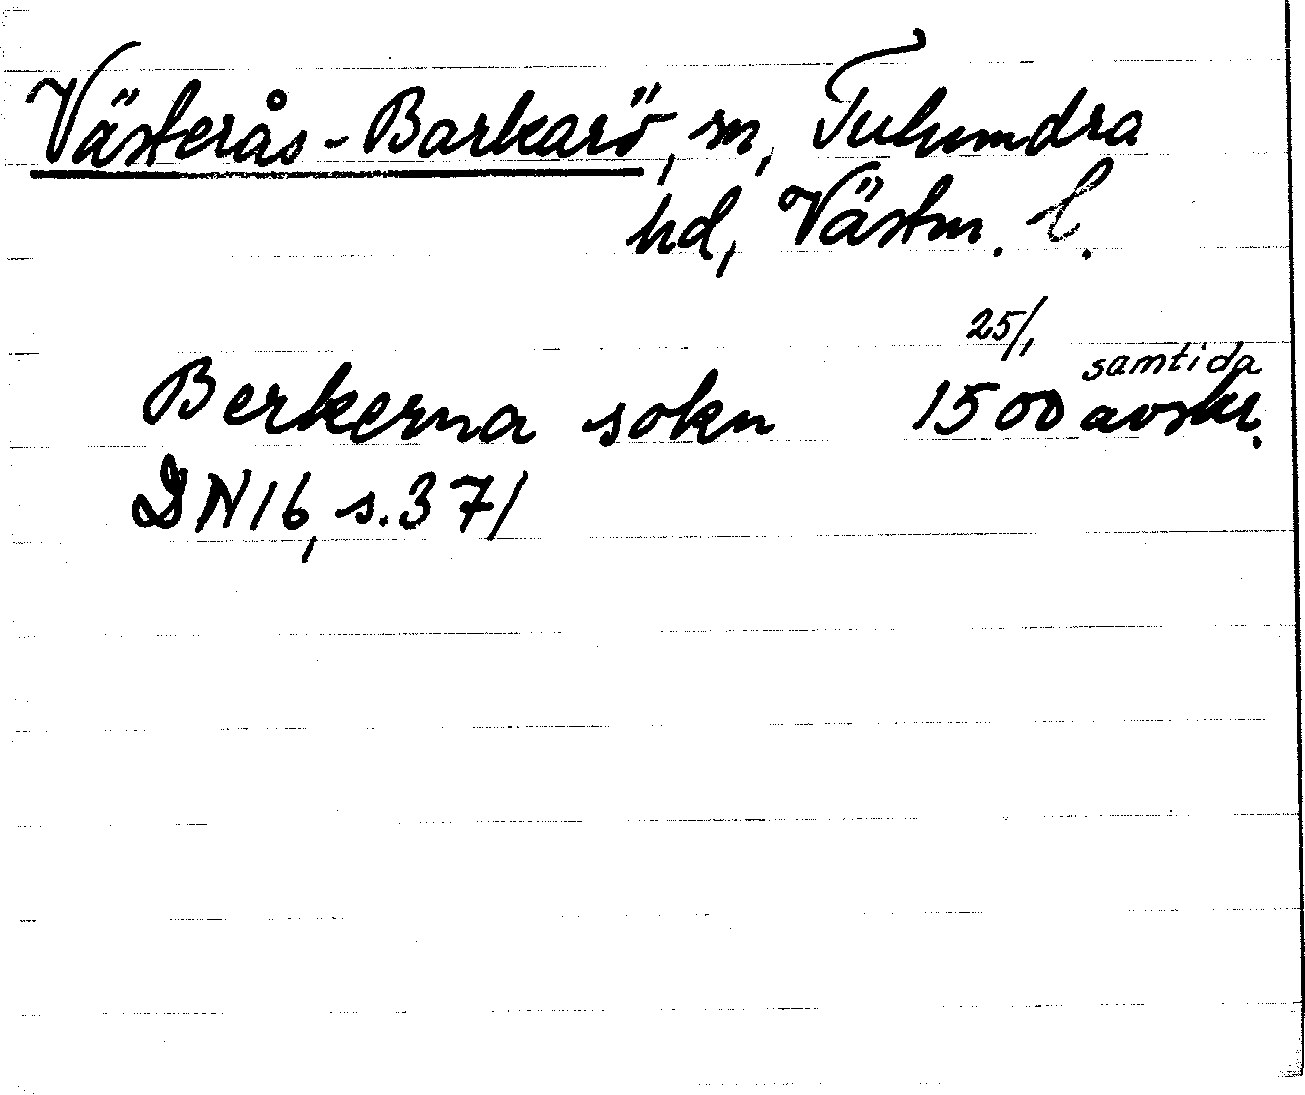 Västerås-Barkarö, sn, Tuhundra
hd, Västm. l.
Berkerna sokn 25/1 1500 samtida avskr.
DN16, s.371